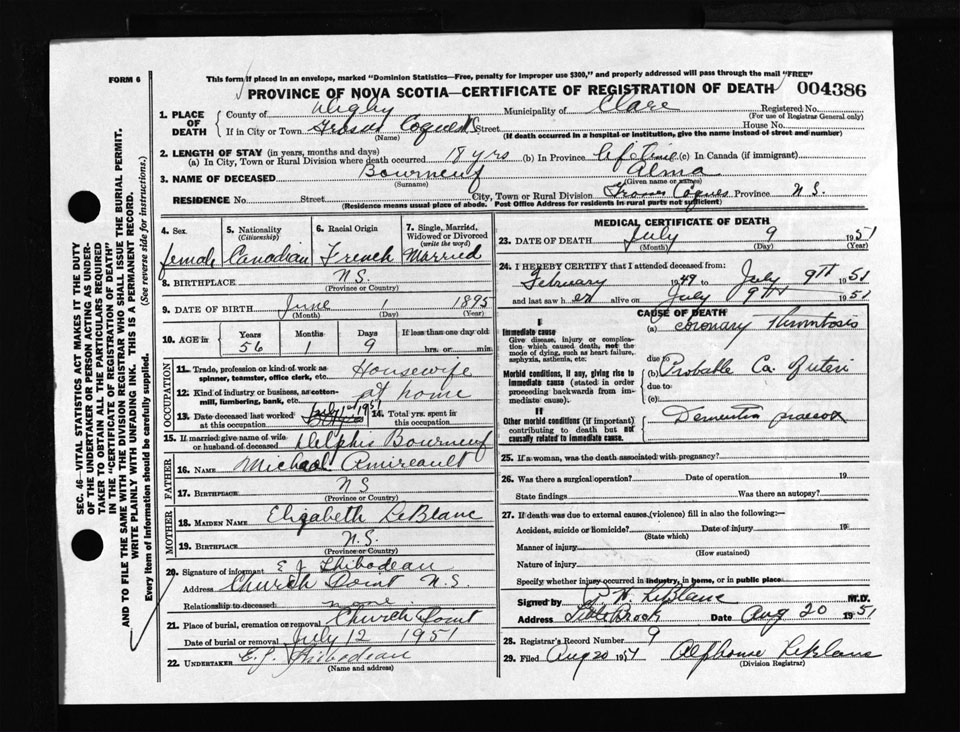 FORM 6
This form if placed in an envelope, marked "Dominion Statistics—Free, penalty for improper use $300," and properly addressed will pass through the mail "FREE"
PROVINCE OF NOVA SCOTIA—CERTIFICATE OF REGISTRATION OF DEATH 004386
1. PLACE OF DEATH
County of Digby Municipality of Clare Registered No.
(For use of Registrar General only)
If in City or Town Grosses Coques Street House No.
(Name) (If death occurred in a hospital or institution, give the name instead of street and number)
2. LENGTH OF STAY (in years, months and days)
(a) In City, Town or Rural Division where death occurred 18 yrs (b) In Province lifetime (c) In Canada (if immigrant)
3. NAME OF DECEASED Bourneuf Alma
(Surname) (Given name or names)
RESIDENCE No. Street City, Town or Rural Division Grosses Coques Province N.S.
(Residence means usual place of abode. Post Office Address for residents in rural parts not sufficient)
4. Sex 5. Nationality (Citizenship) 6. Racial Origin 7. Single, Married, Widowed or Divorced (write the word)
female Canadian French Married
8. BIRTHPLACE N.S.
(Province or Country)
9. DATE OF BIRTH June 1 1895
(Month) (Day) (Year)
10. AGE in Years Months Days If less than one day old
56 1 9 hrs. or min.
OCCUPATION
11. Trade, profession or kind of work as spinner, teamster, office clerk, etc. Housewife
12. Kind of industry or business, as cotton-mill, lumbering, bank, etc. at home
13. Date deceased last worked at this occupation July 1st 1951 14. Total yrs. spent in this occupation
15. If married give name of wife or husband of deceased Delphis Bourneuf
FATHER
16. NAME Michael Amireault
17. BIRTHPLACE N S
(Province or Country)
MOTHER
18. MAIDEN NAME Elizabeth LeBlanc
19. BIRTHPLACE N.S.
(Province or Country)
20. Signature of informant E J Thibodeau
Address Church Point N.S.
Relationship to deceased none
21. Place of burial, cremation or removal Church Point
Date of burial or removal July 12 1951
22. UNDERTAKER E.J. Thibodeau
(Name and address)
MEDICAL CERTIFICATE OF DEATH
23. DATE OF DEATH July 9 1951
(Month) (Day) (Year)
24. I HEREBY CERTIFY that I attended deceased from:
February 1949 to July 9th 1951
and last saw her alive on July 9th 1951
CAUSE OF DEATH
I
Immediate cause
Give disease, injury or complication which caused death, not the mode of dying, such as heart failure, asphyxia, asthenia, etc.
(a) Coronary Thrombosis
due to
Morbid conditions, if any, giving rise to immediate cause (stated in order proceeding backwards from immediate cause).
(b) Probable Ca. Uteri
due to
(c)
II
Other morbid conditions (if important) contributing to death but not causally related to immediate cause.
Dementia praecox
25. If a woman, was the death associated with pregnancy?
26. Was there a surgical operation? Date of operation 19
State findings Was there an autopsy?
27. If death was due to external causes (violence) fill in also the following:—
Accident, suicide or homicide? Date of injury 19
(State which)
Manner of injury
(How sustained)
Nature of injury
Specify whether injury occurred in industry, in home, or in public place
Signed by P. H. LeBlanc M.D.
Address Little Brook Date Aug 20 1951
28. Registrar's Record Number 9
29. Filed Aug 20 1951 Alphonse LeBlanc
(Division Registrar)
SEC. 46—VITAL STATISTICS ACT MAKES IT THE DUTY
OF THE UNDERTAKER OR PERSON ACTING AS UNDER-
TAKER TO OBTAIN ALL THE PARTICULARS REQUIRED
IN THE "CERTIFICATE OF REGISTRATION OF DEATH"
AND TO FILE THE SAME WITH THE DIVISION REGISTRAR WHO SHALL ISSUE THE BURIAL PERMIT.
WRITE PLAINLY WITH UNFADING INK. THIS IS A PERMANENT RECORD.
Every item of information should be carefully supplied. (See reverse side for instructions.)